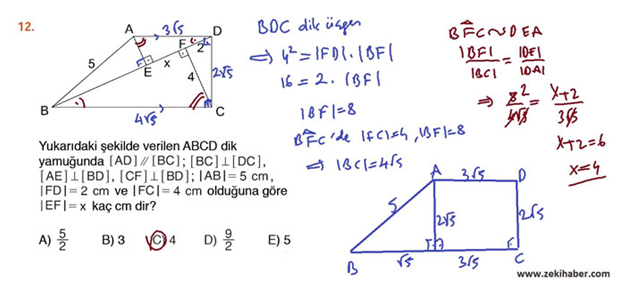 12.
A
3√5
D
F
2
5
E
x
4
2√5
B
4√5
C
Yukarıdaki şekilde verilen ABCD dik
yamuğunda [AD] // [BC]; [BC]⊥[DC],
[AE]⊥[BD], [CF]⊥[BD]; |AB|= 5 cm,
|FD|= 2 cm ve |FC|= 4 cm olduğuna göre
|EF|= x kaç cm dir?
A) 5/2 B) 3 C) 4 D) 9/2 E) 5
BDC dik üçgen
⇒ 4² = |FD|. |BF|
16 = 2. |BF|
|BF|=8
BFC'de |FC|=4, |BF|=8
⇒ |BC|=4√5
BFC ~ DEA
|BF|/|BC| = |DE|/|DA|
⇒ 8/4√5 = x+2/3√5
2
x+2=6
x=4
A
3√5
D
5
2√5
2√5
B
√5
3√5
C
www.zekihaber.com